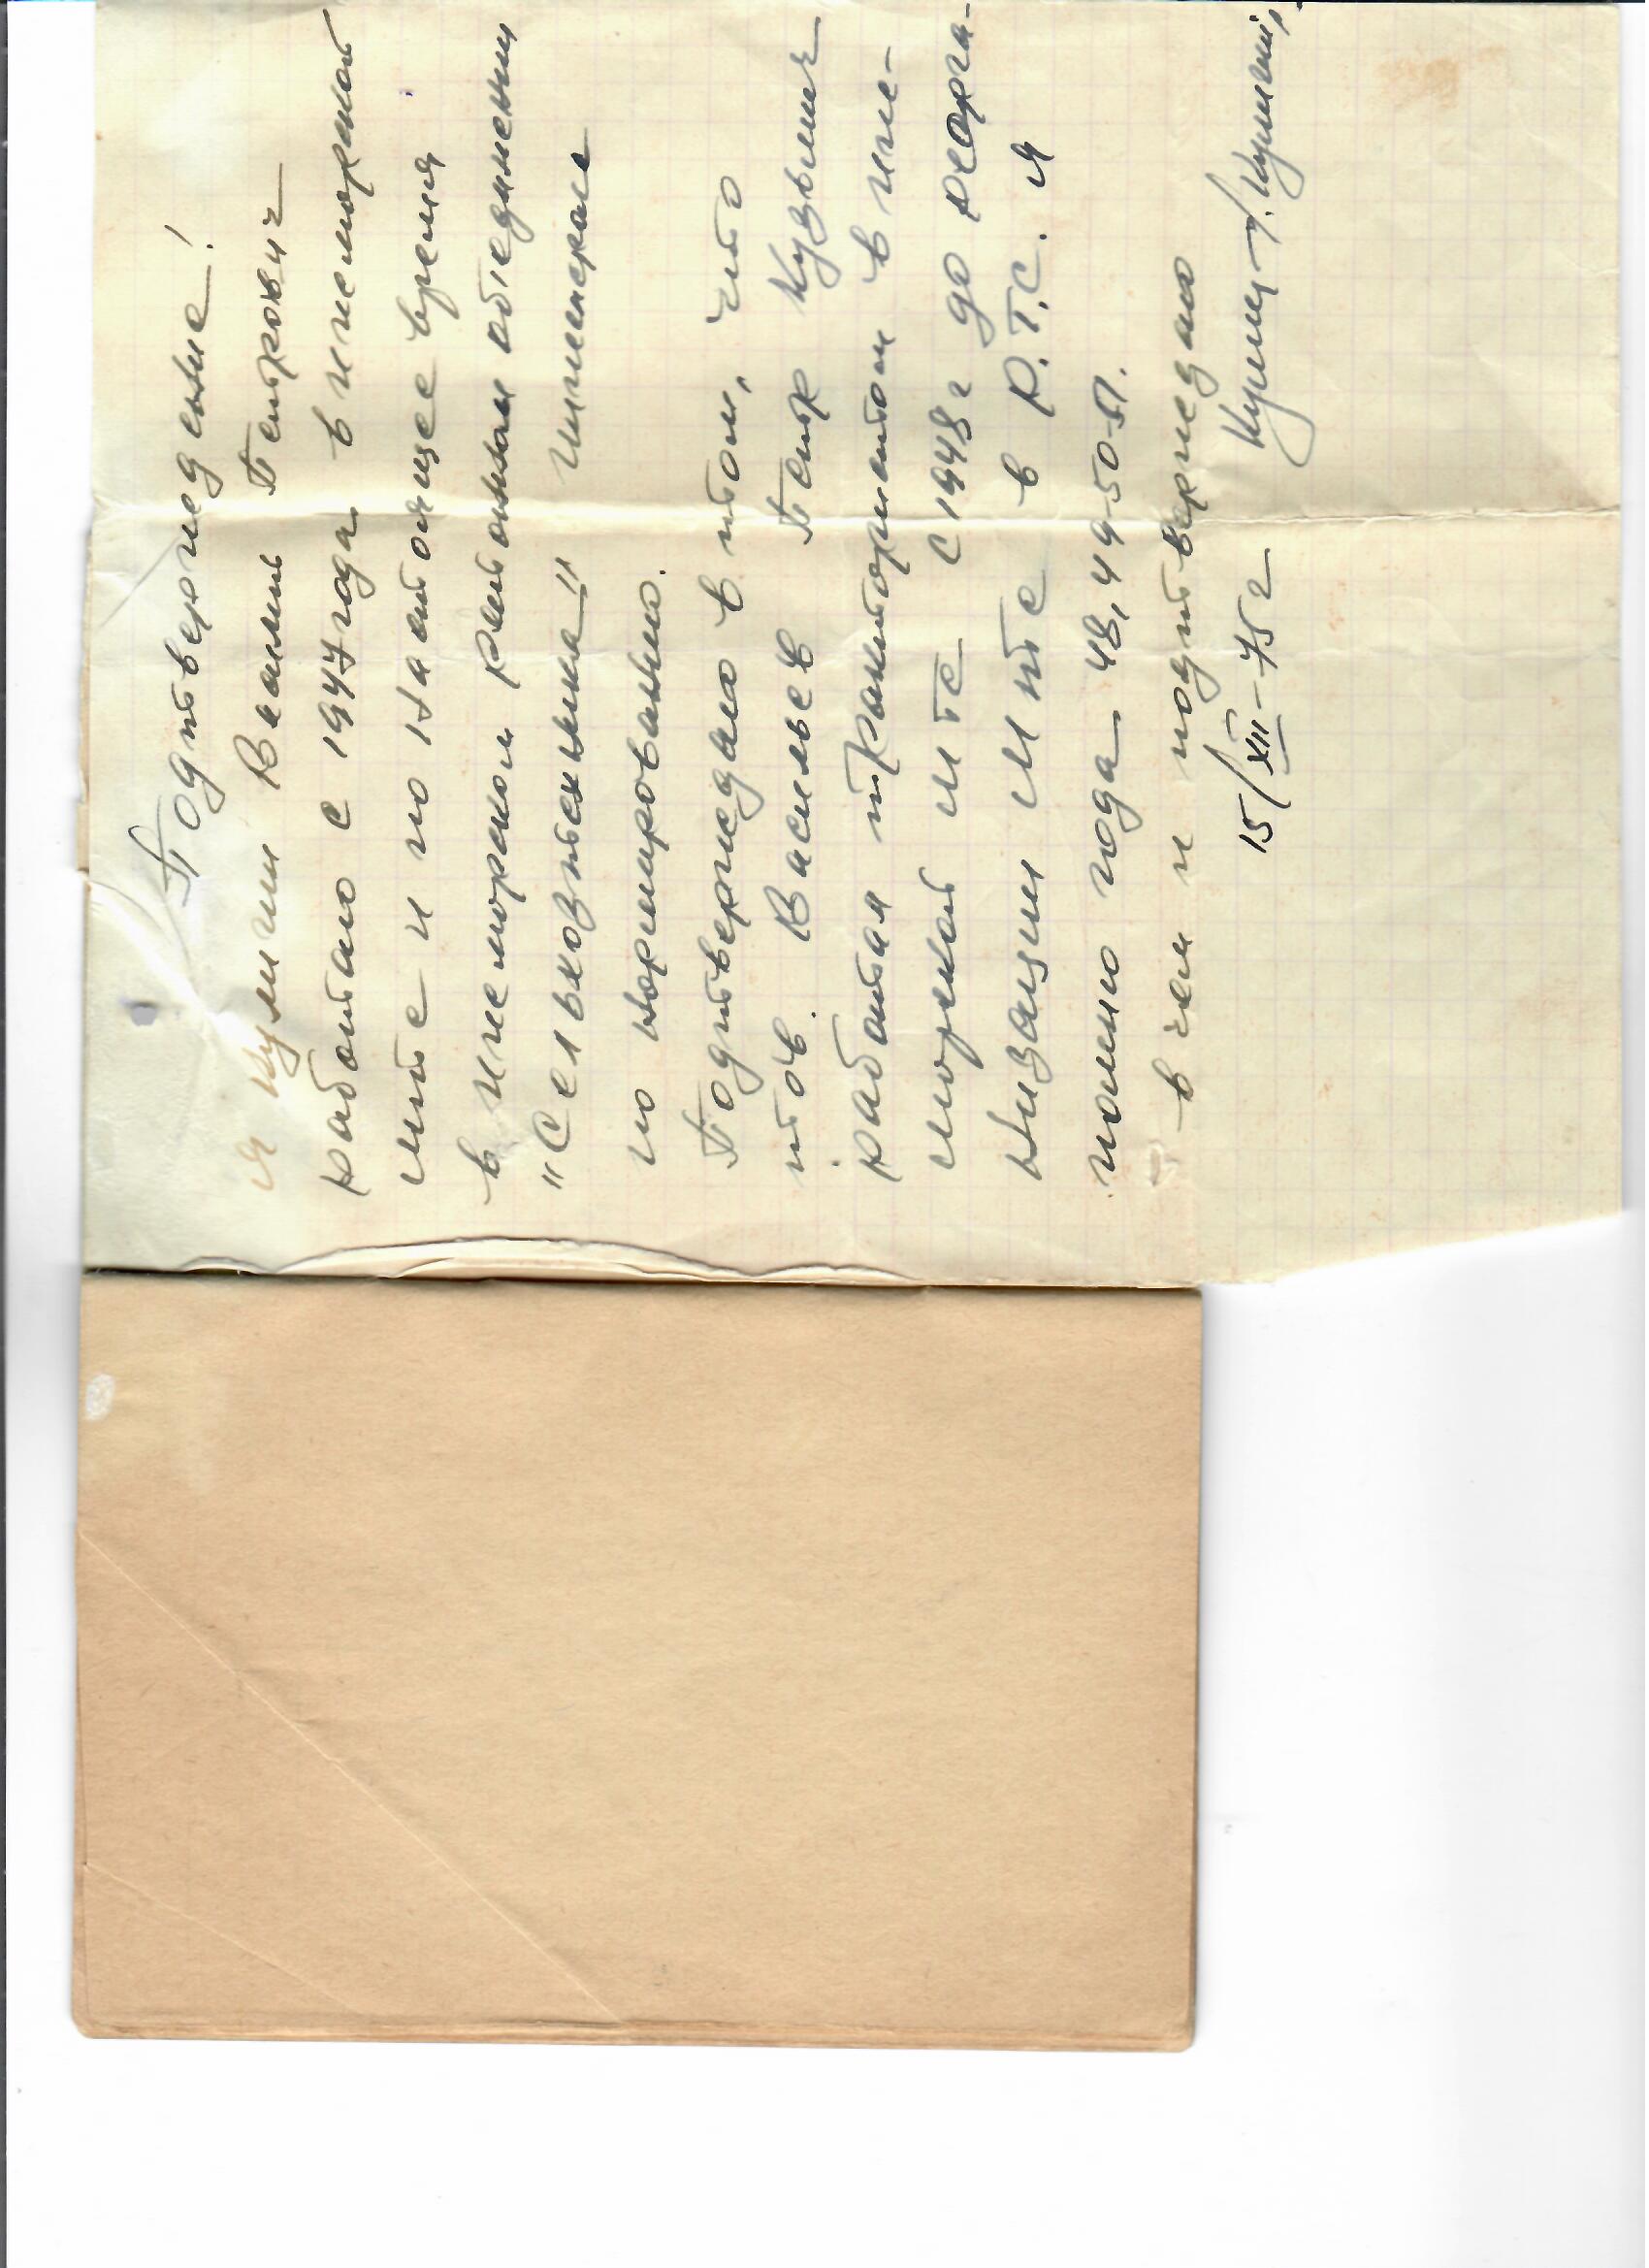 Подтверждение!
Я Кулигин Велин Петрович
работаю с 1947 года в ижморской
мтс и по настоящее время
в ижморском районном объединении
"Сельхозтехника" инженером
по нормированию.
Подтверждаю в том, что
тов. Васильев Петр Кузьмич
работал трактористом в иж-
морской мтс с 1948 г до реорга-
низации мтс в Р.Т.С. Я
помню года 48, 49-50-51.
в чем и подтверждаю
15/XII-75 г